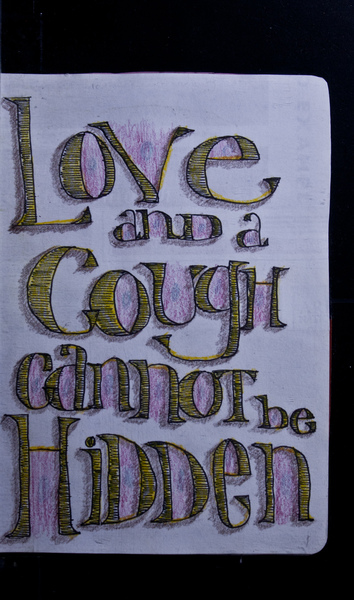 Love
and a
Cough
cannot be
Hidden